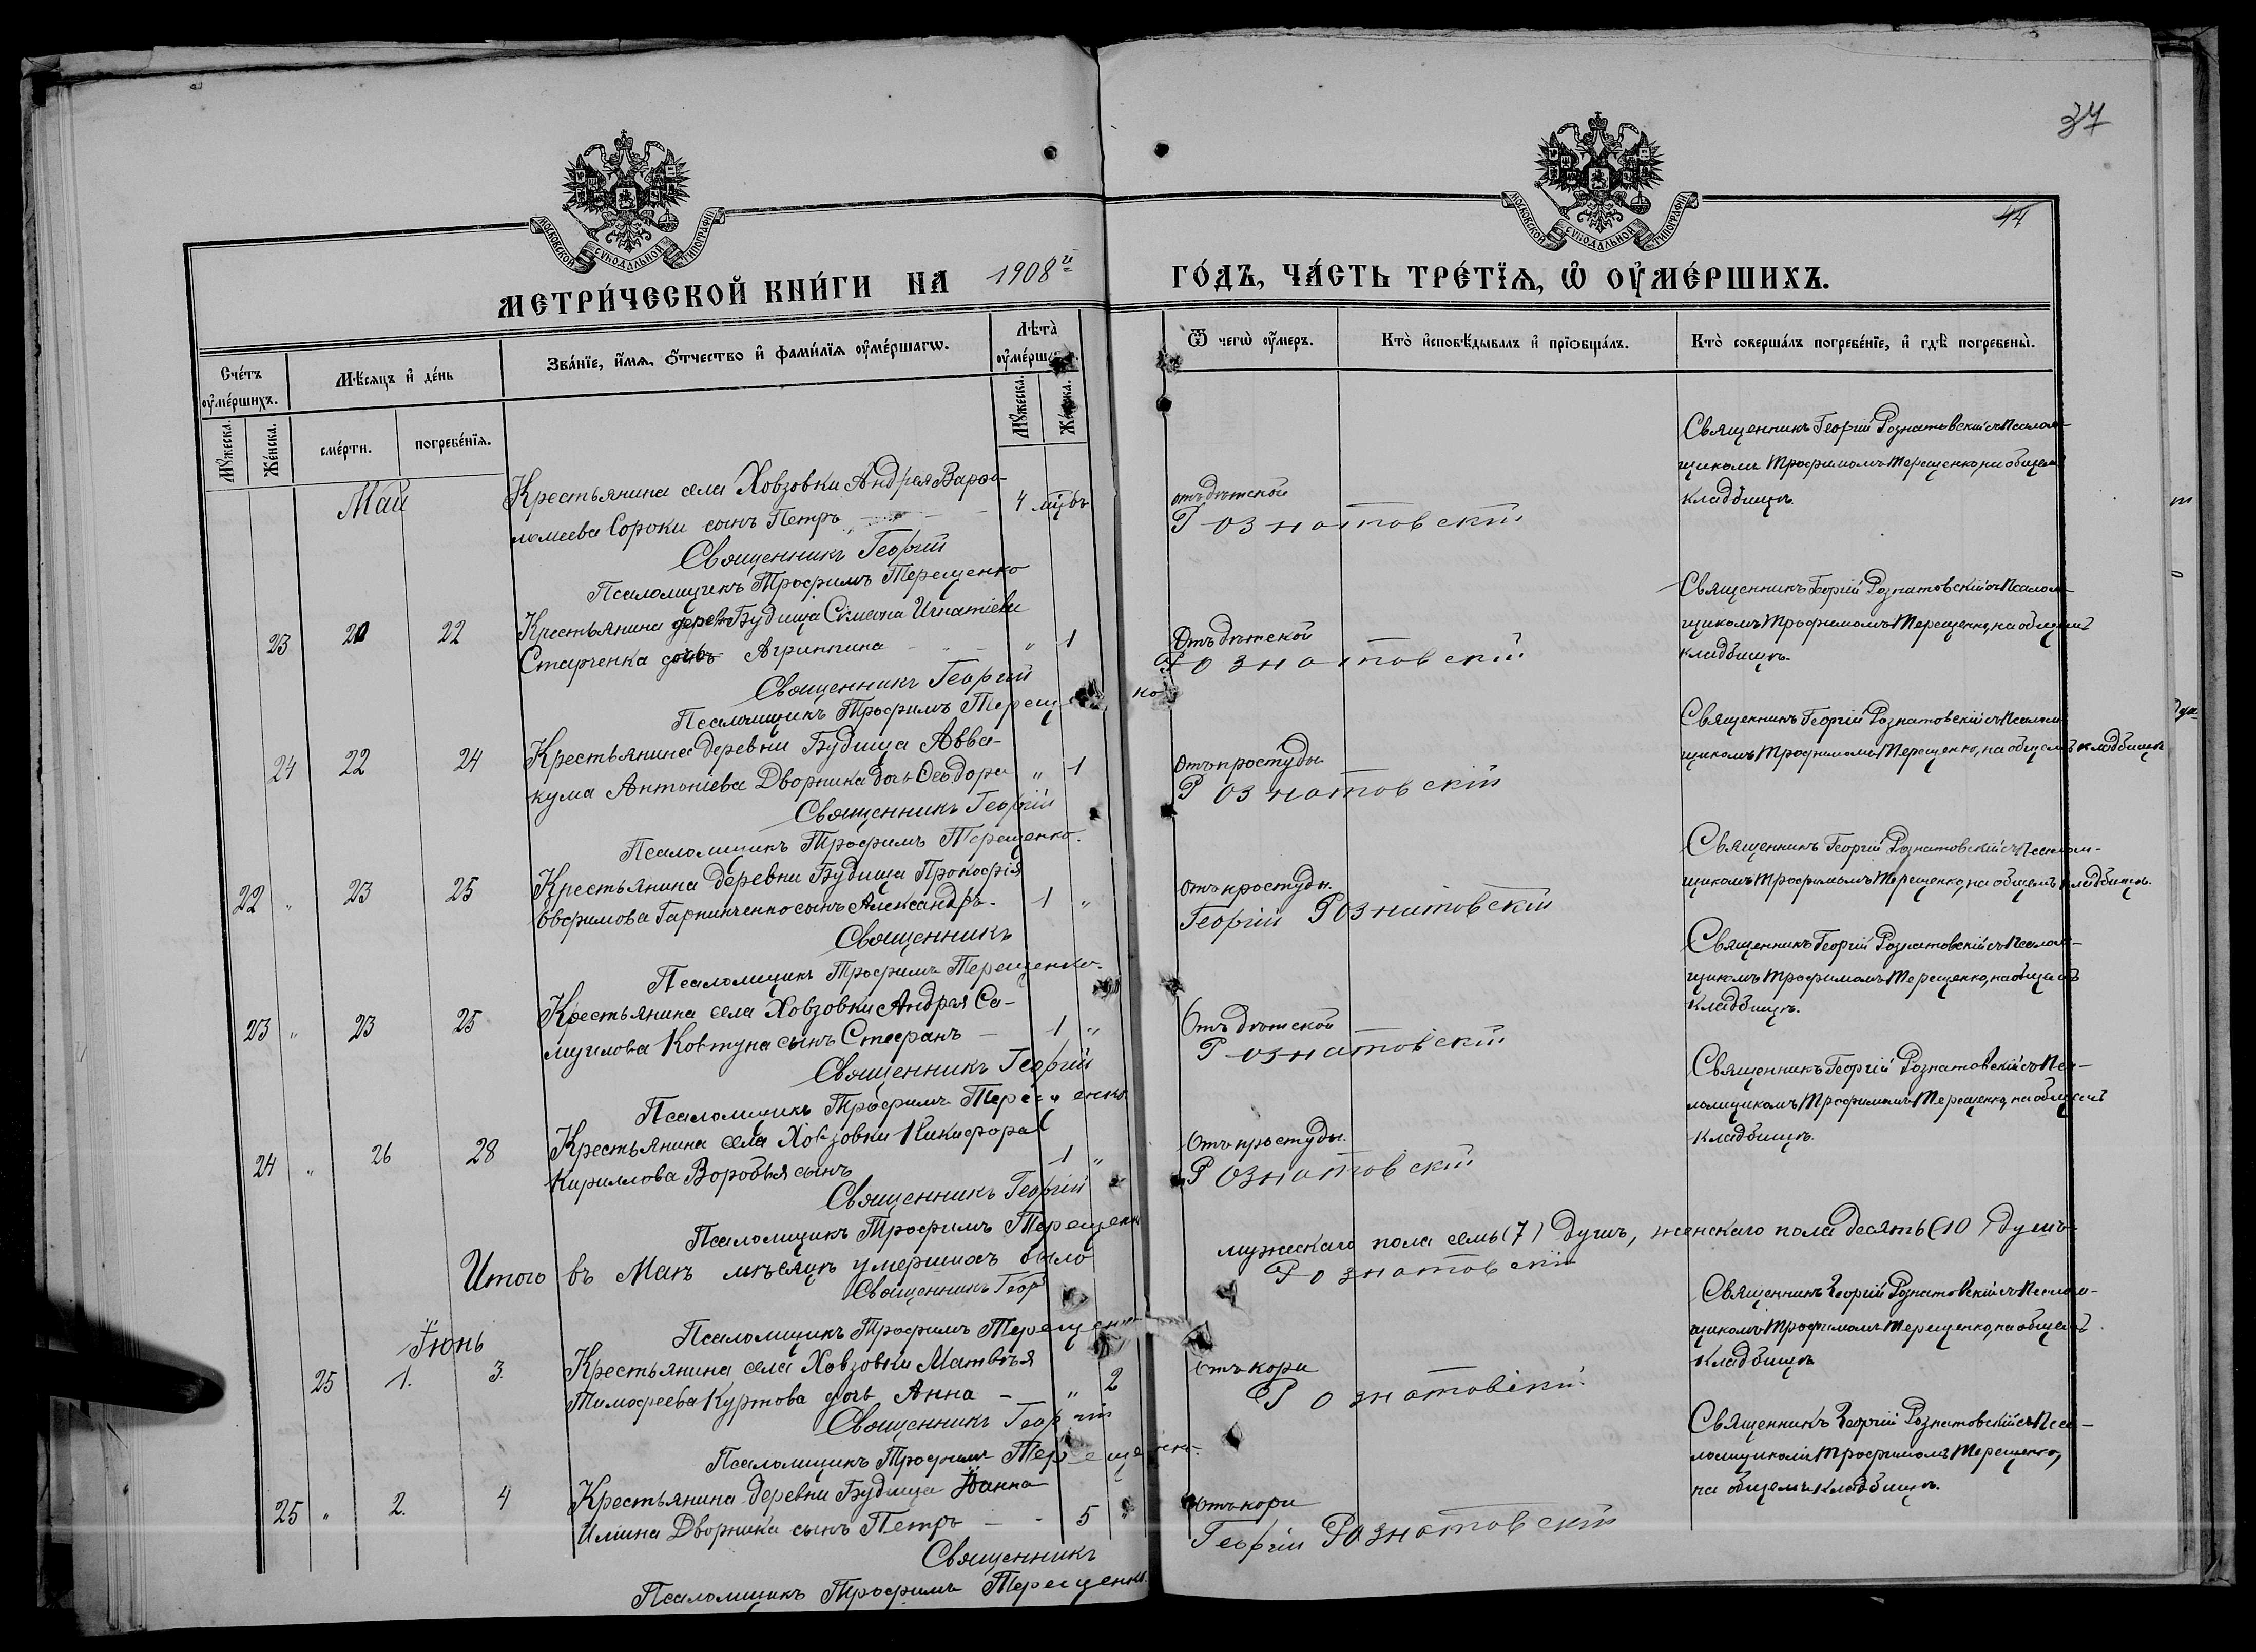 37
44
МОСКОВСКОЙ СѴНОДАЛЬНОЙ ТИПОГРАФІИ
МОСКОВСКОЙ СѴНОДАЛЬНОЙ ТИПОГРАФІИ
МЕТРИ́ЧЕСКОЙ КНИ́ГИ НА 1908й ГО́ДЪ, ЧА́СТЬ ТРЕ́ТЇѦ, Ѡ҆ ОУ҆МЕ́РШИХЪ.
Сче́тъ оу҆ме́ршихъ.
Мѣ́сяцъ и҆ де́нь
Зва́нїе, и҆́мѧ, о҆́тчество и҆ фами́лїѧ оу҆ме́ршагѡ.
Лѣта̀ оу҆ме́рш
Ѿ чегѡ̀ оу҆́меръ.
Кто̀ и҆сповѣ́дывалъ и҆ прїѡбща́лъ.
Кто̀ соверша́лъ погребе́нїе, и҆ гдѣ̀ погребены̀.
Мꙋ́жеска. Же́нска. сме́рти. погребе́нїѧ. Мꙋ́жеска. Же́нска.
Май
Крестьянина села Ховзовки Андрея Варфо-
ломеева Сороки сынъ Петръ 4 мѣс. отъ дѣтской
Священникъ Георгій Рознатовскій
Псаломщикъ Трофимъ Терещенко
Священникъ Георгій Рознатовскій съ псалом-
щикомъ Трофимомъ Терещенко, на общемъ
кладбищѣ.
23 20 22 Крестьянина дерев. Будища Симеона Игнатіева
Старченка дочь Агриппина " 1 Отъ дѣтской
Священникъ Георгій Рознатовскій
Псаломщикъ Трофимъ Терещенко
Священникъ Георгій Рознатовскій съ псалом-
щикомъ Трофимомъ Терещенко, на общемъ
кладбищѣ.
24 22 24 Крестьянина деревни Будища Авва-
кума Антоніева Дворника дочь Ѳеодора " 1 Отъ простуды
Священникъ Георгій Рознатовскій
Псаломщикъ Трофимъ Терещенко.
Священникъ Георгій Рознатовскій съ псалом-
щикомъ Трофимомъ Терещенко, на общемъ кладбищѣ
22 " 23 25 Крестьянина деревни Будища Прокофія
Сынъ Александръ - 1 " Отъ простуды.
Священникъ Георгій Рознатовскій
Псаломщикъ Трофимъ Терещенко.
Священникъ Георгій Рознатовскій съ псалом-
щикомъ Трофимомъ Терещенко, на общемъ кладбищѣ.
23 " 23 25 Крестьянина села Ховзовки Андрея Са-
муилова Ковтуна сынъ Стефанъ - 1 " Отъ дѣтской
Священникъ Георгій Рознатовскій
Псаломщикъ Трофимъ Терещенко
Священникъ Георгій Рознатовскій съ псалом-
щикомъ Трофимомъ Терещенко, на общемъ
кладбищѣ.
24 " 26 28 Крестьянина села Ховзовки Никифора
Кириллова Воробья сынъ 1 " Отъ простуды.
Священникъ Георгій Рознатовскій
Псаломщикъ Трофимъ Терещенко
Священникъ Георгій Рознатовскій съ пса-
ломщикомъ Трофимомъ Терещенко, на общемъ
кладбищѣ.
Итого въ Маѣ мѣсяцѣ умершихъ было мужескаго пола семь (7) душъ, женскаго пола десять (10) душъ
Священникъ Георгій Рознатовскій
Псаломщикъ Трофимъ Терещенко
Іюнь
25 1. 3. Крестьянина села Ховзовки Матвѣя
Тимофеева Куртова дочь Анна - " 2 Отъ кори
Священникъ Георгій Рознатовскій
Псаломщикъ Трофимъ Терещенко.
Священникъ Георгій Рознатовскій съ псалом-
щикомъ Трофимомъ Терещенко, на общемъ
кладбищѣ
25 " 2. 4 Крестьянина деревни Будища Іоанна
Илiина Дворника сынъ Петръ - - 5 " Отъ кори
Священникъ Георгій Рознатовскій
Псаломщикъ Трофимъ Терещенко.
Священникъ Георгій Рознатовскій съ пса-
ломщикомъ Трофимомъ Терещенко,
на общемъ кладбищѣ.